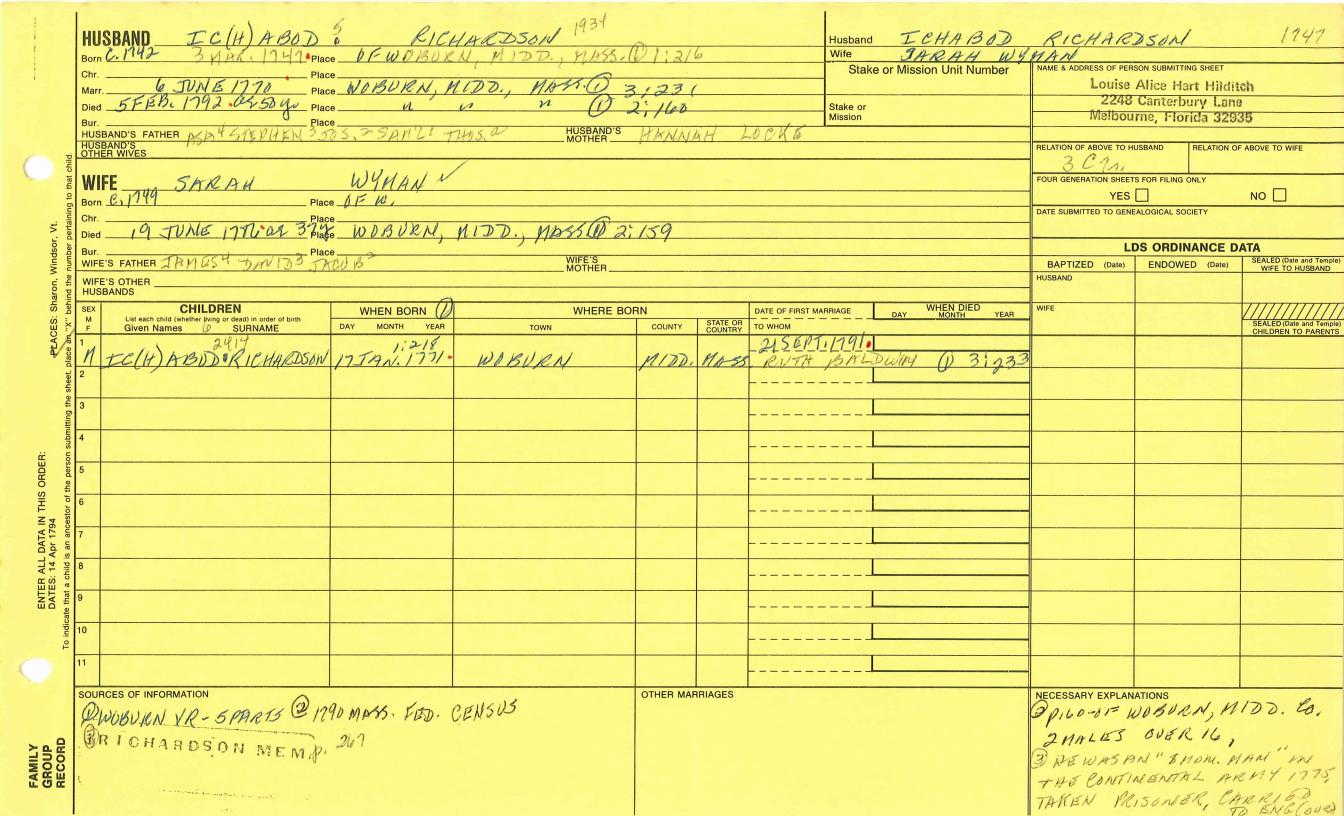 HUSBAND IC(H)ABOD 5 RICHARDSON 1934
Born C. 1742 3 MAR. 1747 Place OF WOBURN, MIDD., MASS. ① 1:216
Chr. Place
Marr. 6 JUNE 1770 Place WOBURN, MIDD., MASS. ① 3:231
Died 5 FEB. 1792 ae 50 y. Place " " " ① 2:160
Bur. Place
HUSBAND'S FATHER ASA 4 STEPHEN 3 JOS. 2 SAM'L 1 HUSBAND'S MOTHER HANNAH LOCKE
HUSBAND'S OTHER WIVES
WIFE SARAH WYMAN ✓
Born C. 1749 Place OF W.
Chr. Place
Died 19 JUNE Place WOBURN, MIDD., MASS ① 2:159
Bur. Place
WIFE'S FATHER JAMES 4 DAVID 3 JACOB 2 WIFE'S MOTHER
WIFE'S OTHER HUSBANDS
Husband ICHABOD RICHARDSON 1747
Wife SARAH WYMAN
Stake or Mission Unit Number
Stake or Mission
NAME & ADDRESS OF PERSON SUBMITTING SHEET
Louise Alice Hart Hilditch
2248 Canterbury Lane
Melbourne, Florida 32935
RELATION OF ABOVE TO HUSBAND RELATION OF ABOVE TO WIFE
3 C
FOUR GENERATION SHEETS FOR FILING ONLY
YES NO
DATE SUBMITTED TO GENEALOGICAL SOCIETY
LDS ORDINANCE DATA
BAPTIZED (Date) ENDOWED (Date) SEALED (Date and Temple) WIFE TO HUSBAND
HUSBAND
WIFE
SEALED (Date and Temple) CHILDREN TO PARENTS
SEX M F
CHILDREN
List each child (whether living or dead) in order of birth
Given Names SURNAME
WHEN BORN ①
DAY MONTH YEAR
WHERE BORN
TOWN COUNTY STATE OR COUNTRY
DATE OF FIRST MARRIAGE
TO WHOM
WHEN DIED
DAY MONTH YEAR
1 2414 1:218 21 SEPT. 1791
M IC(H)ABOD RICHARDSON 17 JAN. 1771 WOBURN MIDD. MASS. RUTH BALDWIN ① 3:233
2
3
4
5
6
7
8
9
10
11
SOURCES OF INFORMATION
① WOBURN VR - 5 PARTS ② 1790 MASS. FED. CENSUS
③ RICHARDSON MEM. p. 267
OTHER MARRIAGES
NECESSARY EXPLANATIONS
② OF WOBURN, MIDD. CO.
2 MALES OVER 16,
③ HE WAS AN MAN" IN
THE CONTINENTAL ARMY 1775,
TAKEN PRISONER, CARRIED
TO ENG (OVER)
PLACES: Sharon, Windsor, Vt.
ENTER ALL DATA IN THIS ORDER:
DATES: 14 Apr 1794
To indicate that a child is an ancestor of the person submitting the sheet, place an "X" behind the number pertaining to that child.
FAMILY GROUP RECORD